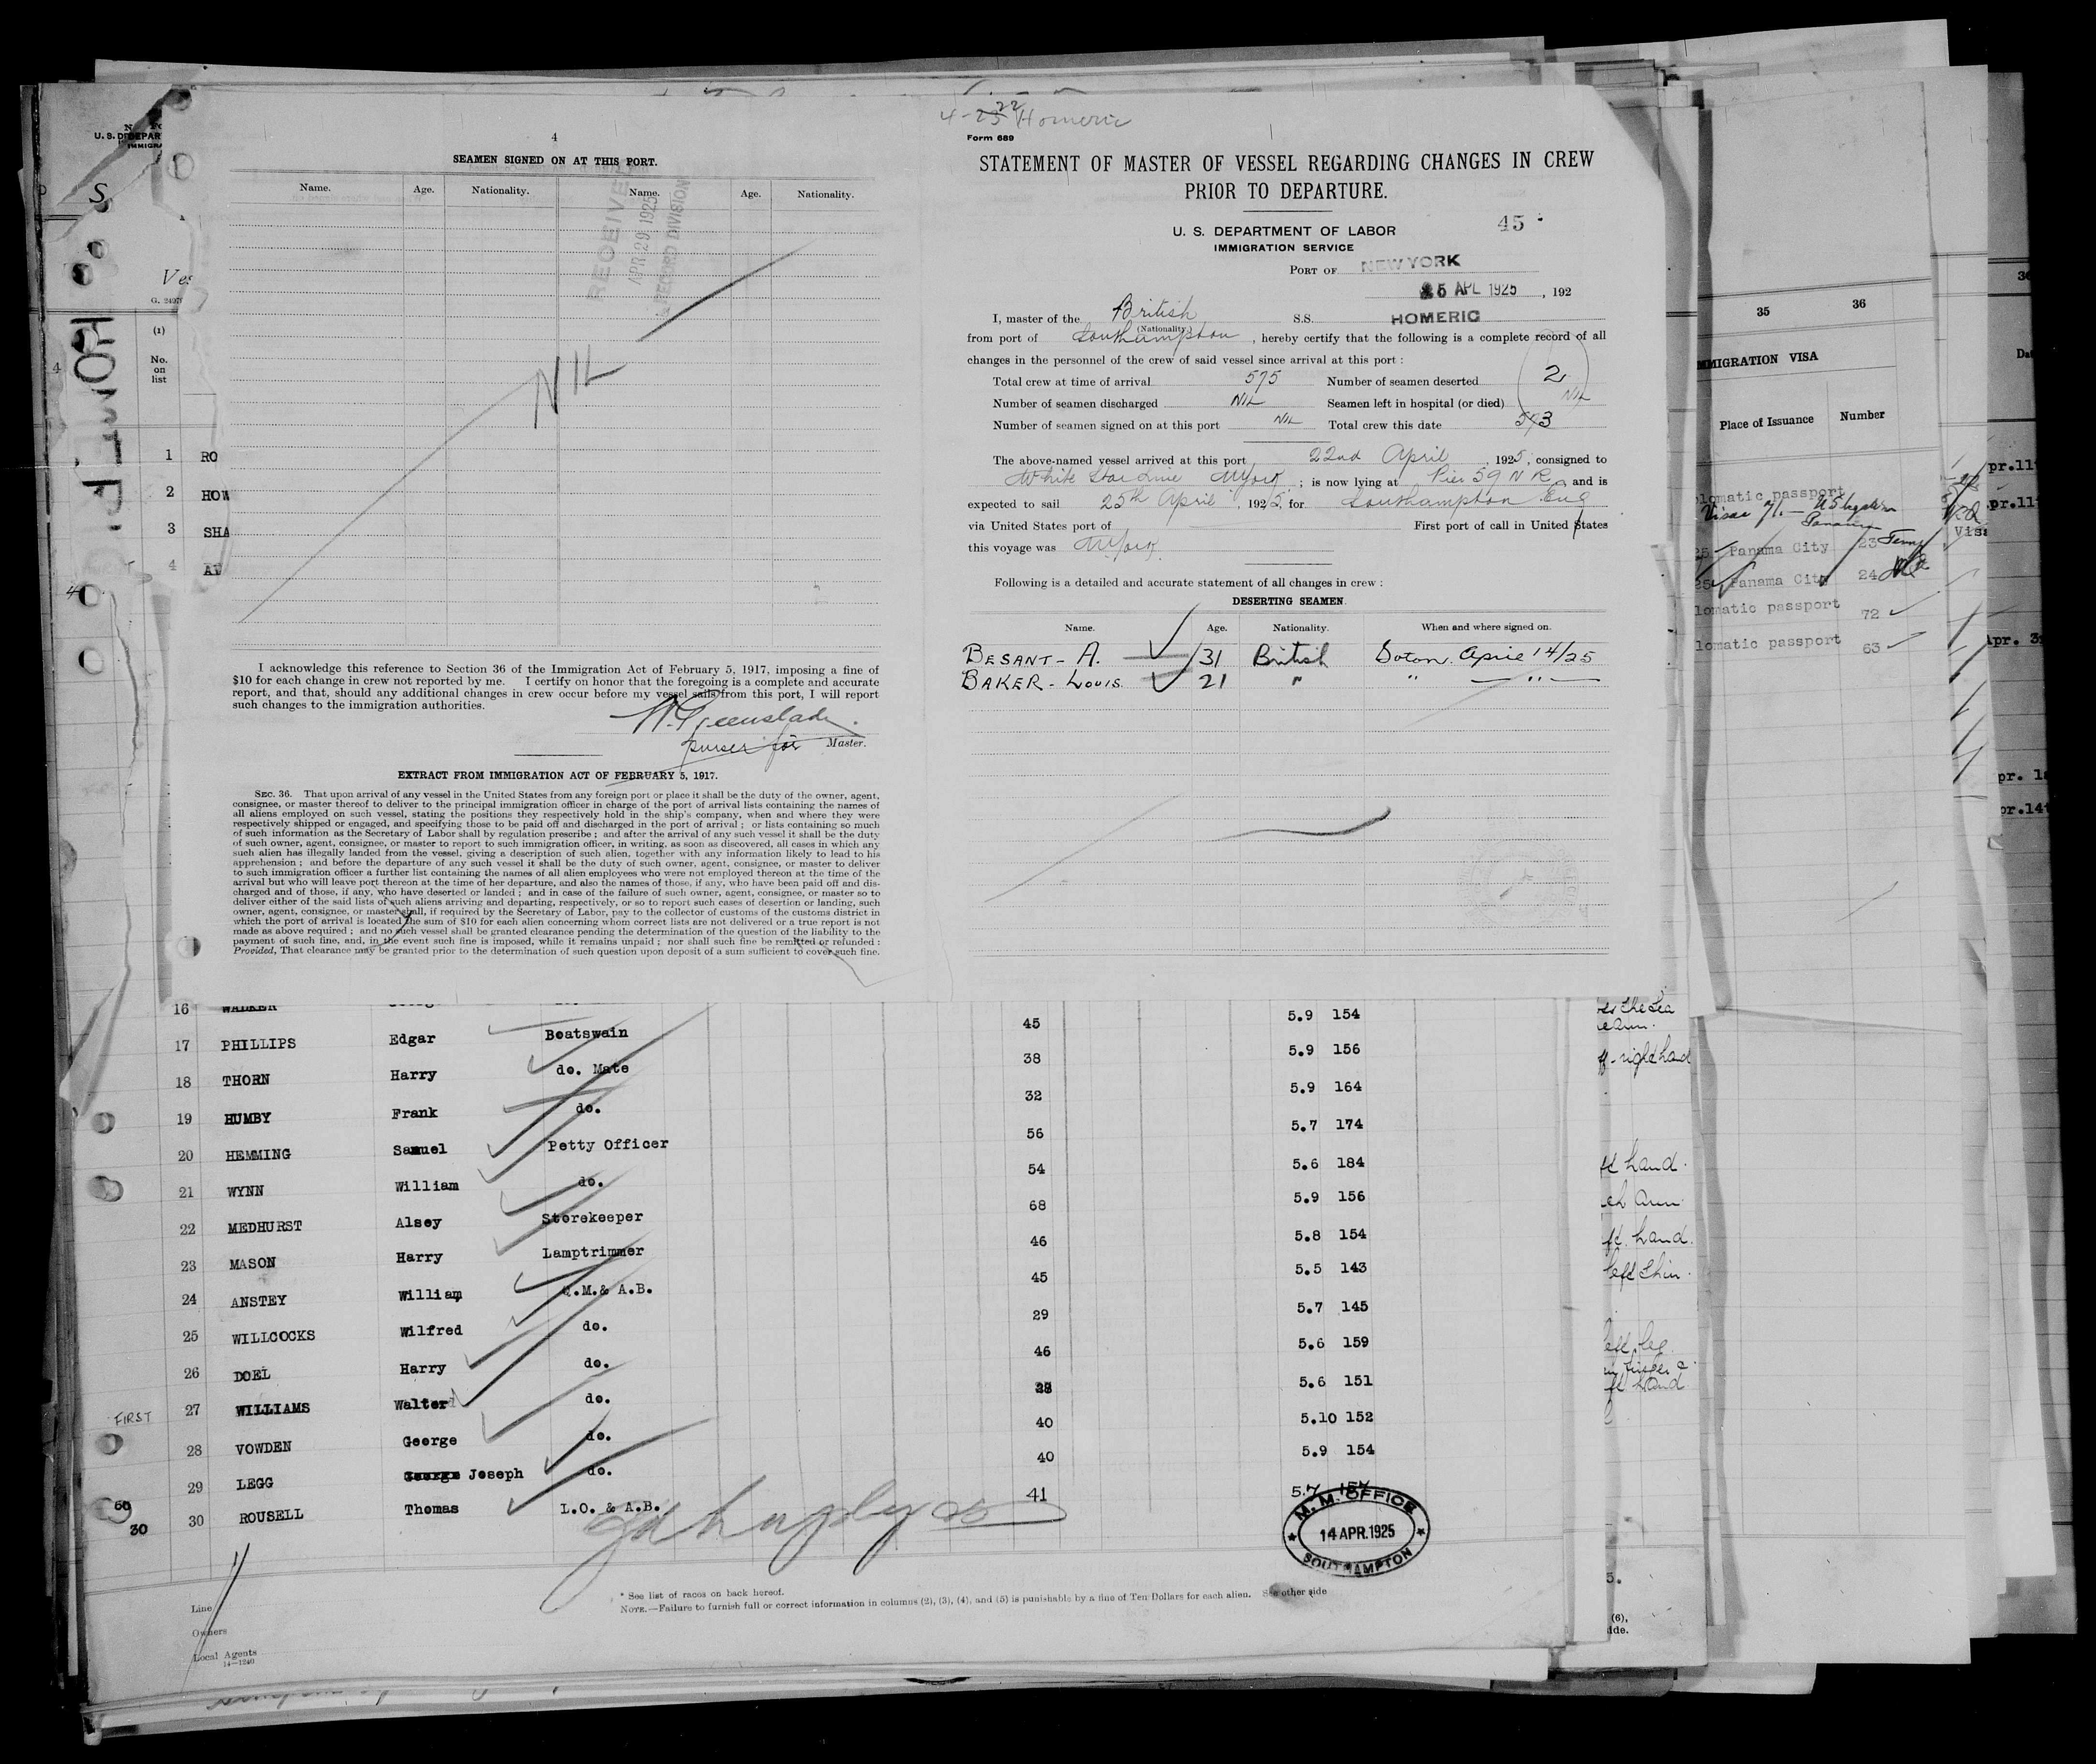 4
SEAMEN SIGNED ON AT THIS PORT.
Name. Age. Nationality. Name. Age. Nationality.
RECEIVED
APR 29 1925
RECORD DIVISION
NIL
I acknowledge this reference to Section 36 of the Immigration Act of February 5, 1917, imposing a fine of
$10 for each change in crew not reported by me. I certify on honor that the foregoing is a complete and accurate
report, and that, should any additional changes in crew occur before my vessel sails from this port, I will report
such changes to the immigration authorities.
W. Greenslade.
purser for Master.
EXTRACT FROM IMMIGRATION ACT OF FEBRUARY 5, 1917.
SEC. 36. That upon arrival of any vessel in the United States from any foreign port or place it shall be the duty of the owner, agent,
consignee, or master thereof to deliver to the principal immigration officer in charge of the port of arrival lists containing the names of
all aliens employed on such vessel, stating the positions they respectively hold in the ship's company, when and where they were
respectively shipped or engaged, and specifying those to be paid off and discharged in the port of arrival; or lists containing so much
of such information as the Secretary of Labor shall by regulation prescribe; and after the arrival of any such vessel it shall be the duty
of such owner, agent, consignee, or master to report to such immigration officer, in writing, as soon as discovered, all cases in which any
such alien has illegally landed from the vessel, giving a description of such alien, together with any information likely to lead to his
apprehension; and before the departure of any such vessel it shall be the duty of such owner, agent, consignee, or master to deliver
to such immigration officer a further list containing the names of all alien employees who were not employed thereon at the time of the
arrival but who will leave port thereon at the time of her departure, and also the names of those, if any, who have been paid off and dis-
charged and of those, if any, who have deserted or landed; and in case of the failure of such owner, agent, consignee, or master so to
deliver either of the said lists of such aliens arriving and departing, respectively, or so to report such cases of desertion or landing, such
owner, agent, consignee, or master shall, if required by the Secretary of Labor, pay to the collector of customs of the customs district in
which the port of arrival is located the sum of $10 for each alien concerning whom correct lists are not delivered or a true report is not
made as above required; and no such vessel shall be granted clearance pending the determination of the question of the liability to the
payment of such fine, and, in the event such fine is imposed, while it remains unpaid; nor shall such fine be remitted or refunded:
Provided, That clearance may be granted prior to the determination of such question upon deposit of a sum sufficient to cover such fine.
4-25 22 Homeric
Form 689
STATEMENT OF MASTER OF VESSEL REGARDING CHANGES IN CREW
PRIOR TO DEPARTURE.
U. S. DEPARTMENT OF LABOR
IMMIGRATION SERVICE
45
PORT OF NEW YORK
25 APL 1925, 192
I, master of the British S.S. HOMERIC
(Nationality)
from port of Southampton, hereby certify that the following is a complete record of all
changes in the personnel of the crew of said vessel since arrival at this port:
Total crew at time of arrival 575 Number of seamen deserted 2
Number of seamen discharged NIL Seamen left in hospital (or died) NIL
Number of seamen signed on at this port NIL Total crew this date 573
The above-named vessel arrived at this port 22nd April, 1925, consigned to
White Star Line NYork; is now lying at Pier 59 N R, and is
expected to sail 25th April, 1925, for Southampton Eng
via United States port of First port of call in United States
this voyage was NYork
Following is a detailed and accurate statement of all changes in crew:
DESERTING SEAMEN.
Name. Age. Nationality. When and where signed on.
BESANT - A. 31 British Soton. April 14/25
BAKER - LOUIS. 21 " " — " —
S
Ves
HOMERIC
(1)
No.
on
list
1 RO
2 HOW
3 SHA
4
16 WALKER
17 PHILLIPS Edgar Boatswain 45 5.9 154
18 THORN Harry do. Mate 38 5.9 156
19 HUMBY Frank do. 32 5.9 164
20 HEMMING Samuel Petty Officer 56 5.7 174
21 WYNN William do. 54 5.6 184
22 MEDHURST Alsey Storekeeper 68 5.9 156
23 MASON Harry Lamptrimmer 46 5.8 154
24 ANSTEY William Q.M.& A.B. 45 5.5 143
25 WILLCOCKS Wilfred do. 29 5.7 145
26 DOEL Harry do. 46 5.6 159
FIRST 27 WILLIAMS Walter do. 5.6 151
28 VOWDEN George do. 40 5.10 152
29 LEGG George Joseph do. 40 5.9 154
30 30 ROUSELL Thomas L.O. & A.B. 41 5.7
M. M. OFFICE
14 APR. 1925
SOUTHAMPTON
* See list of races on back hereof.
NOTE.—Failure to furnish full or correct information in columns (2), (3), (4), and (5) is punishable by a fine of Ten Dollars for each alien. See other side
Line
Owners
Local Agents
14—1240
35 36
IMMIGRATION VISA
Place of Issuance Number
Panama City 23
Panama City 24
lomatic passport 72
lomatic passport 63
right hand
hand.
hand.
left shin.